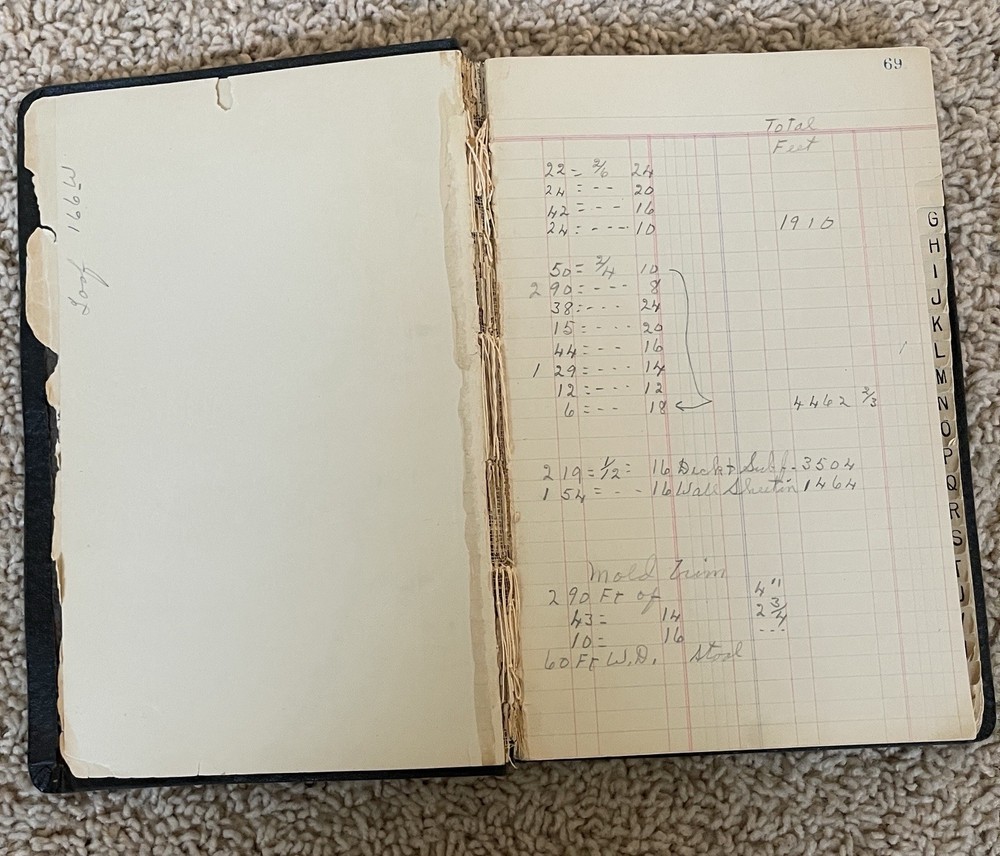 69
Total
Feet
22 = 2/6 24
24 = - - 20
42 = - - - 16
24 = - - - - 10 1910
50 = 2/4 10
290 = - - - 8
38 = - - - 24
15 = - - - 20
44 = - - 16
129 = - - - 14
12 = - - - 12
6 = - - 18 4462 2/3
219 = 1/12 = 16 Deck & 3504
154 = - - - 16 Wall Sheetin 1464
Mold Trim
290 Ft of 4"
43 = 14 2 3/4
10 = 16 - - -
60 Ft W.D. Stool
G
H
I
J
K
L
M
N
O
P
Q
R
S
T
Roof 166W